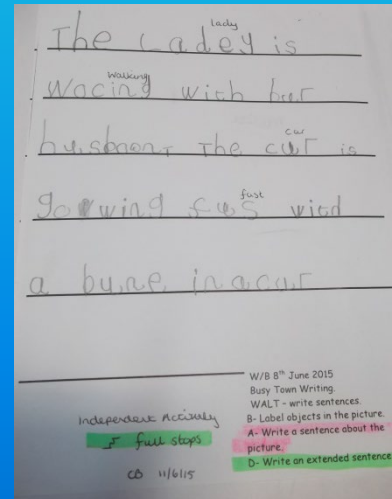 lady
The Ladey is
walking
wocing with har
car
husbant The car is
fast
gowing fas wid
a bune in a car
W/B 8th June 2015
Busy Town Writing.
WALT - write sentences.
B- Label objects in the picture.
A- Write a sentence about the
picture.
D- Write an extended sentence
Independent Activity
full stops
CB 11/6/15